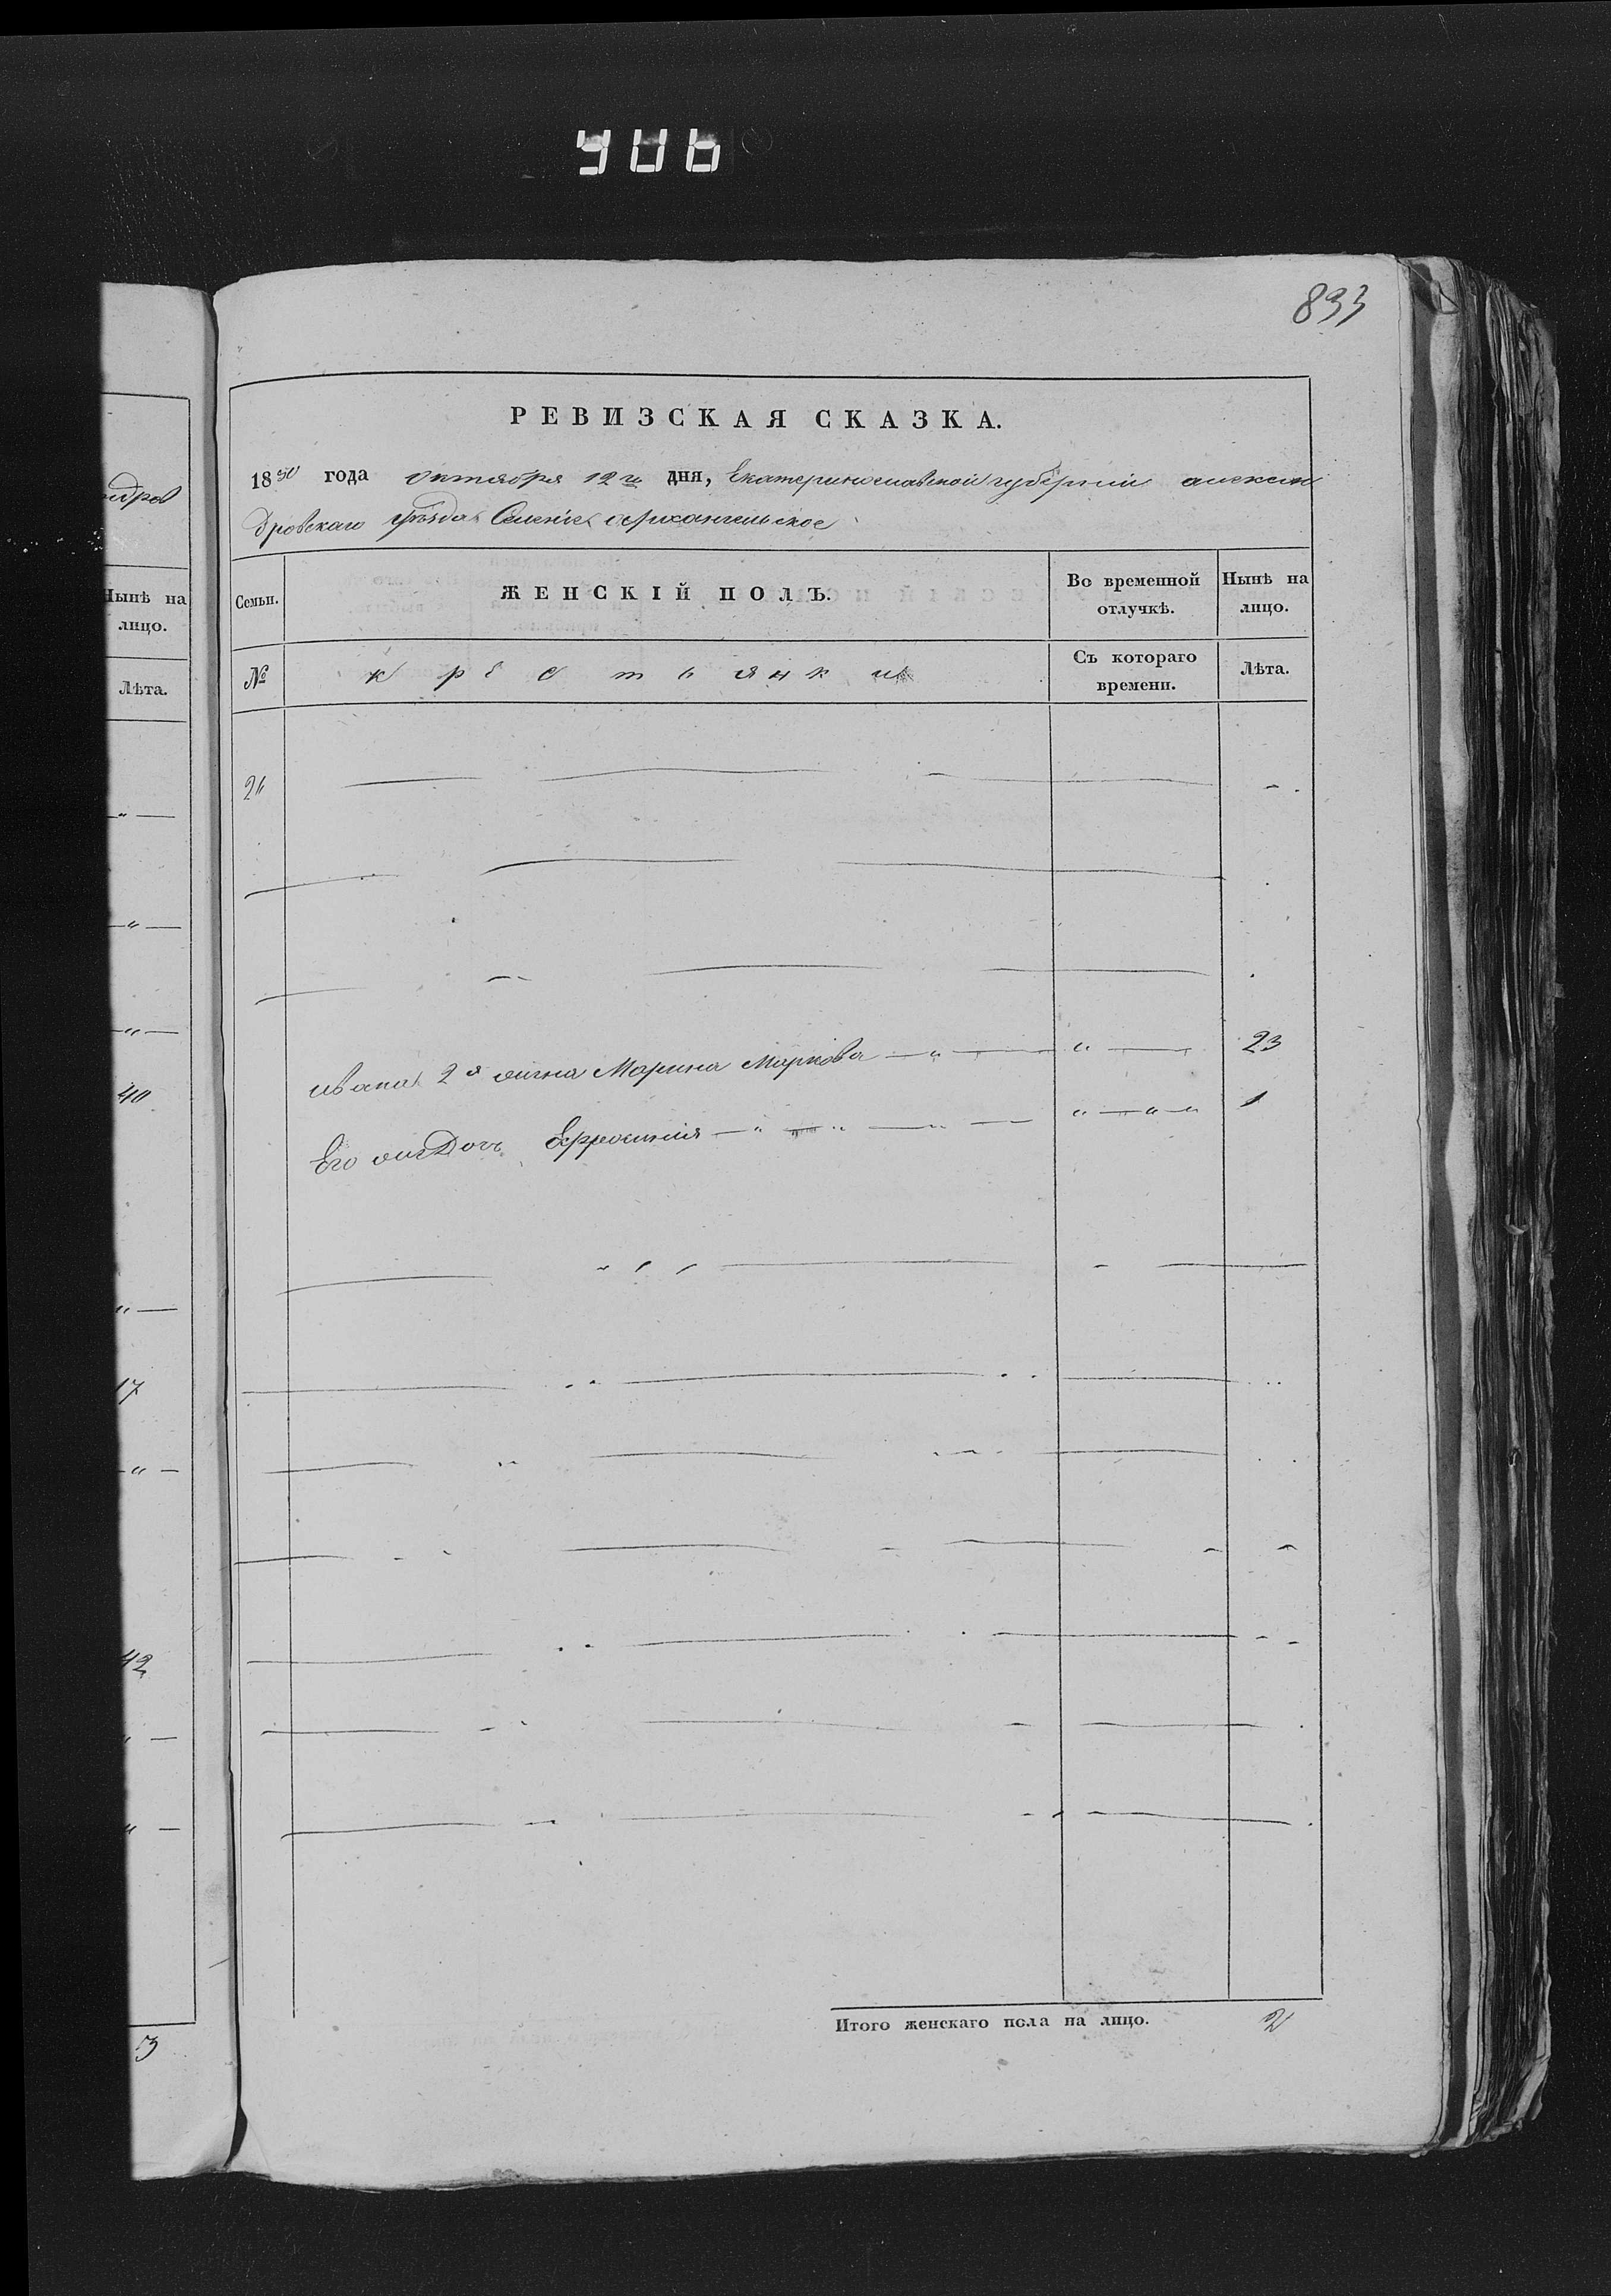 906
833
ндров
Нынѣ на
лицо.
Лѣта.
40
17
42
3
РЕВИЗСКАЯ СКАЗКА.
1850 года октября 12го дня, Екатеринославской губерніи алексан
дровскаго уѣзда Селеніе архангельское
Семьи.
ЖЕНСКІЙ ПОЛЪ.
Во временной
отлучкѣ.
Нынѣ на
лицо.
№
крестьянки
Съ котораго
времени.
Лѣта.
2й жена Марина Маркова 23
Его дочь 1
Итого женскаго пола на лицо. 2